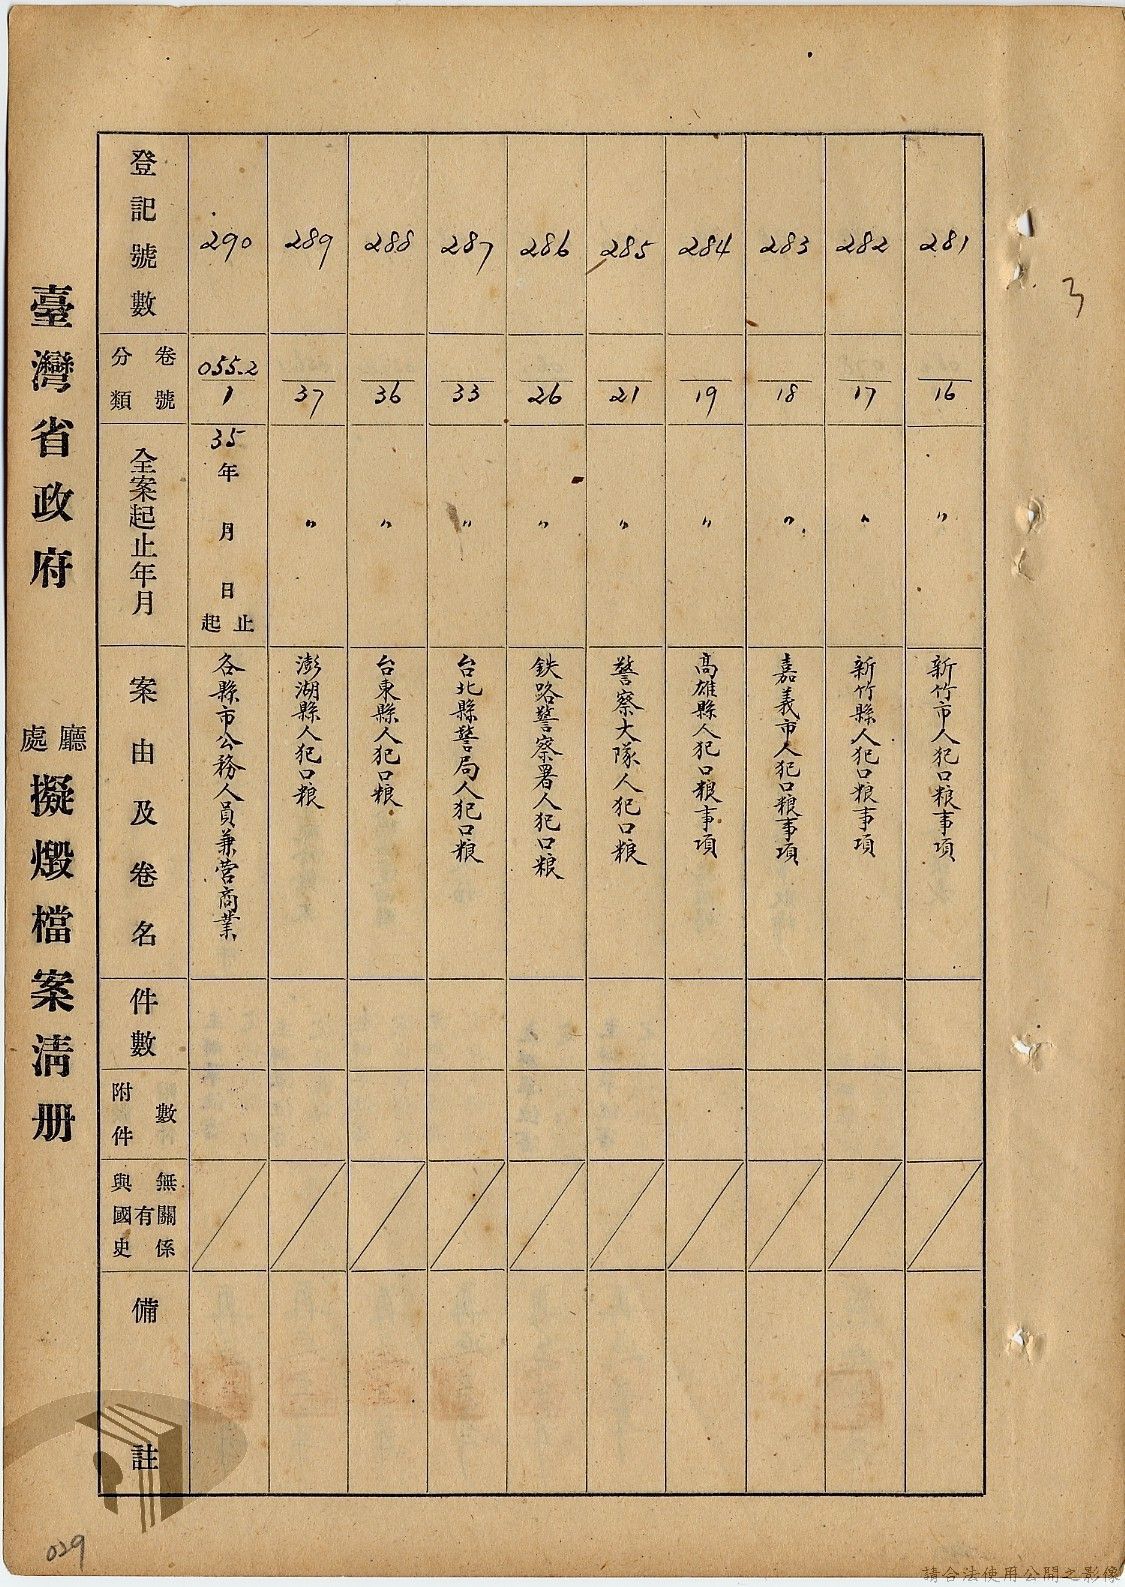 臺灣省政府 廳處 擬燬檔案清册
登記號數
290
289
288
287
286
285
284
283
282
281
3
卷號
分類
055.2/1
37
36
33
26
21
19
18
17
16
全案起止年月
35年 月 日 起止
〃
〃
〃
〃
〃
〃
〃
〃
〃
案由及卷名
各縣市公務人員兼营商業
澎湖縣人犯口粮
台東縣人犯口粮
台北縣警局人犯口粮
鉄路警察署人犯口粮
警察大隊人犯口粮
高雄縣人犯口粮事項
嘉義市人犯口粮事項
新竹縣人犯口粮事項
新竹市人犯口粮事項
件數
附件數
與國史有無關係
備註
029
請合法使用公開之影像